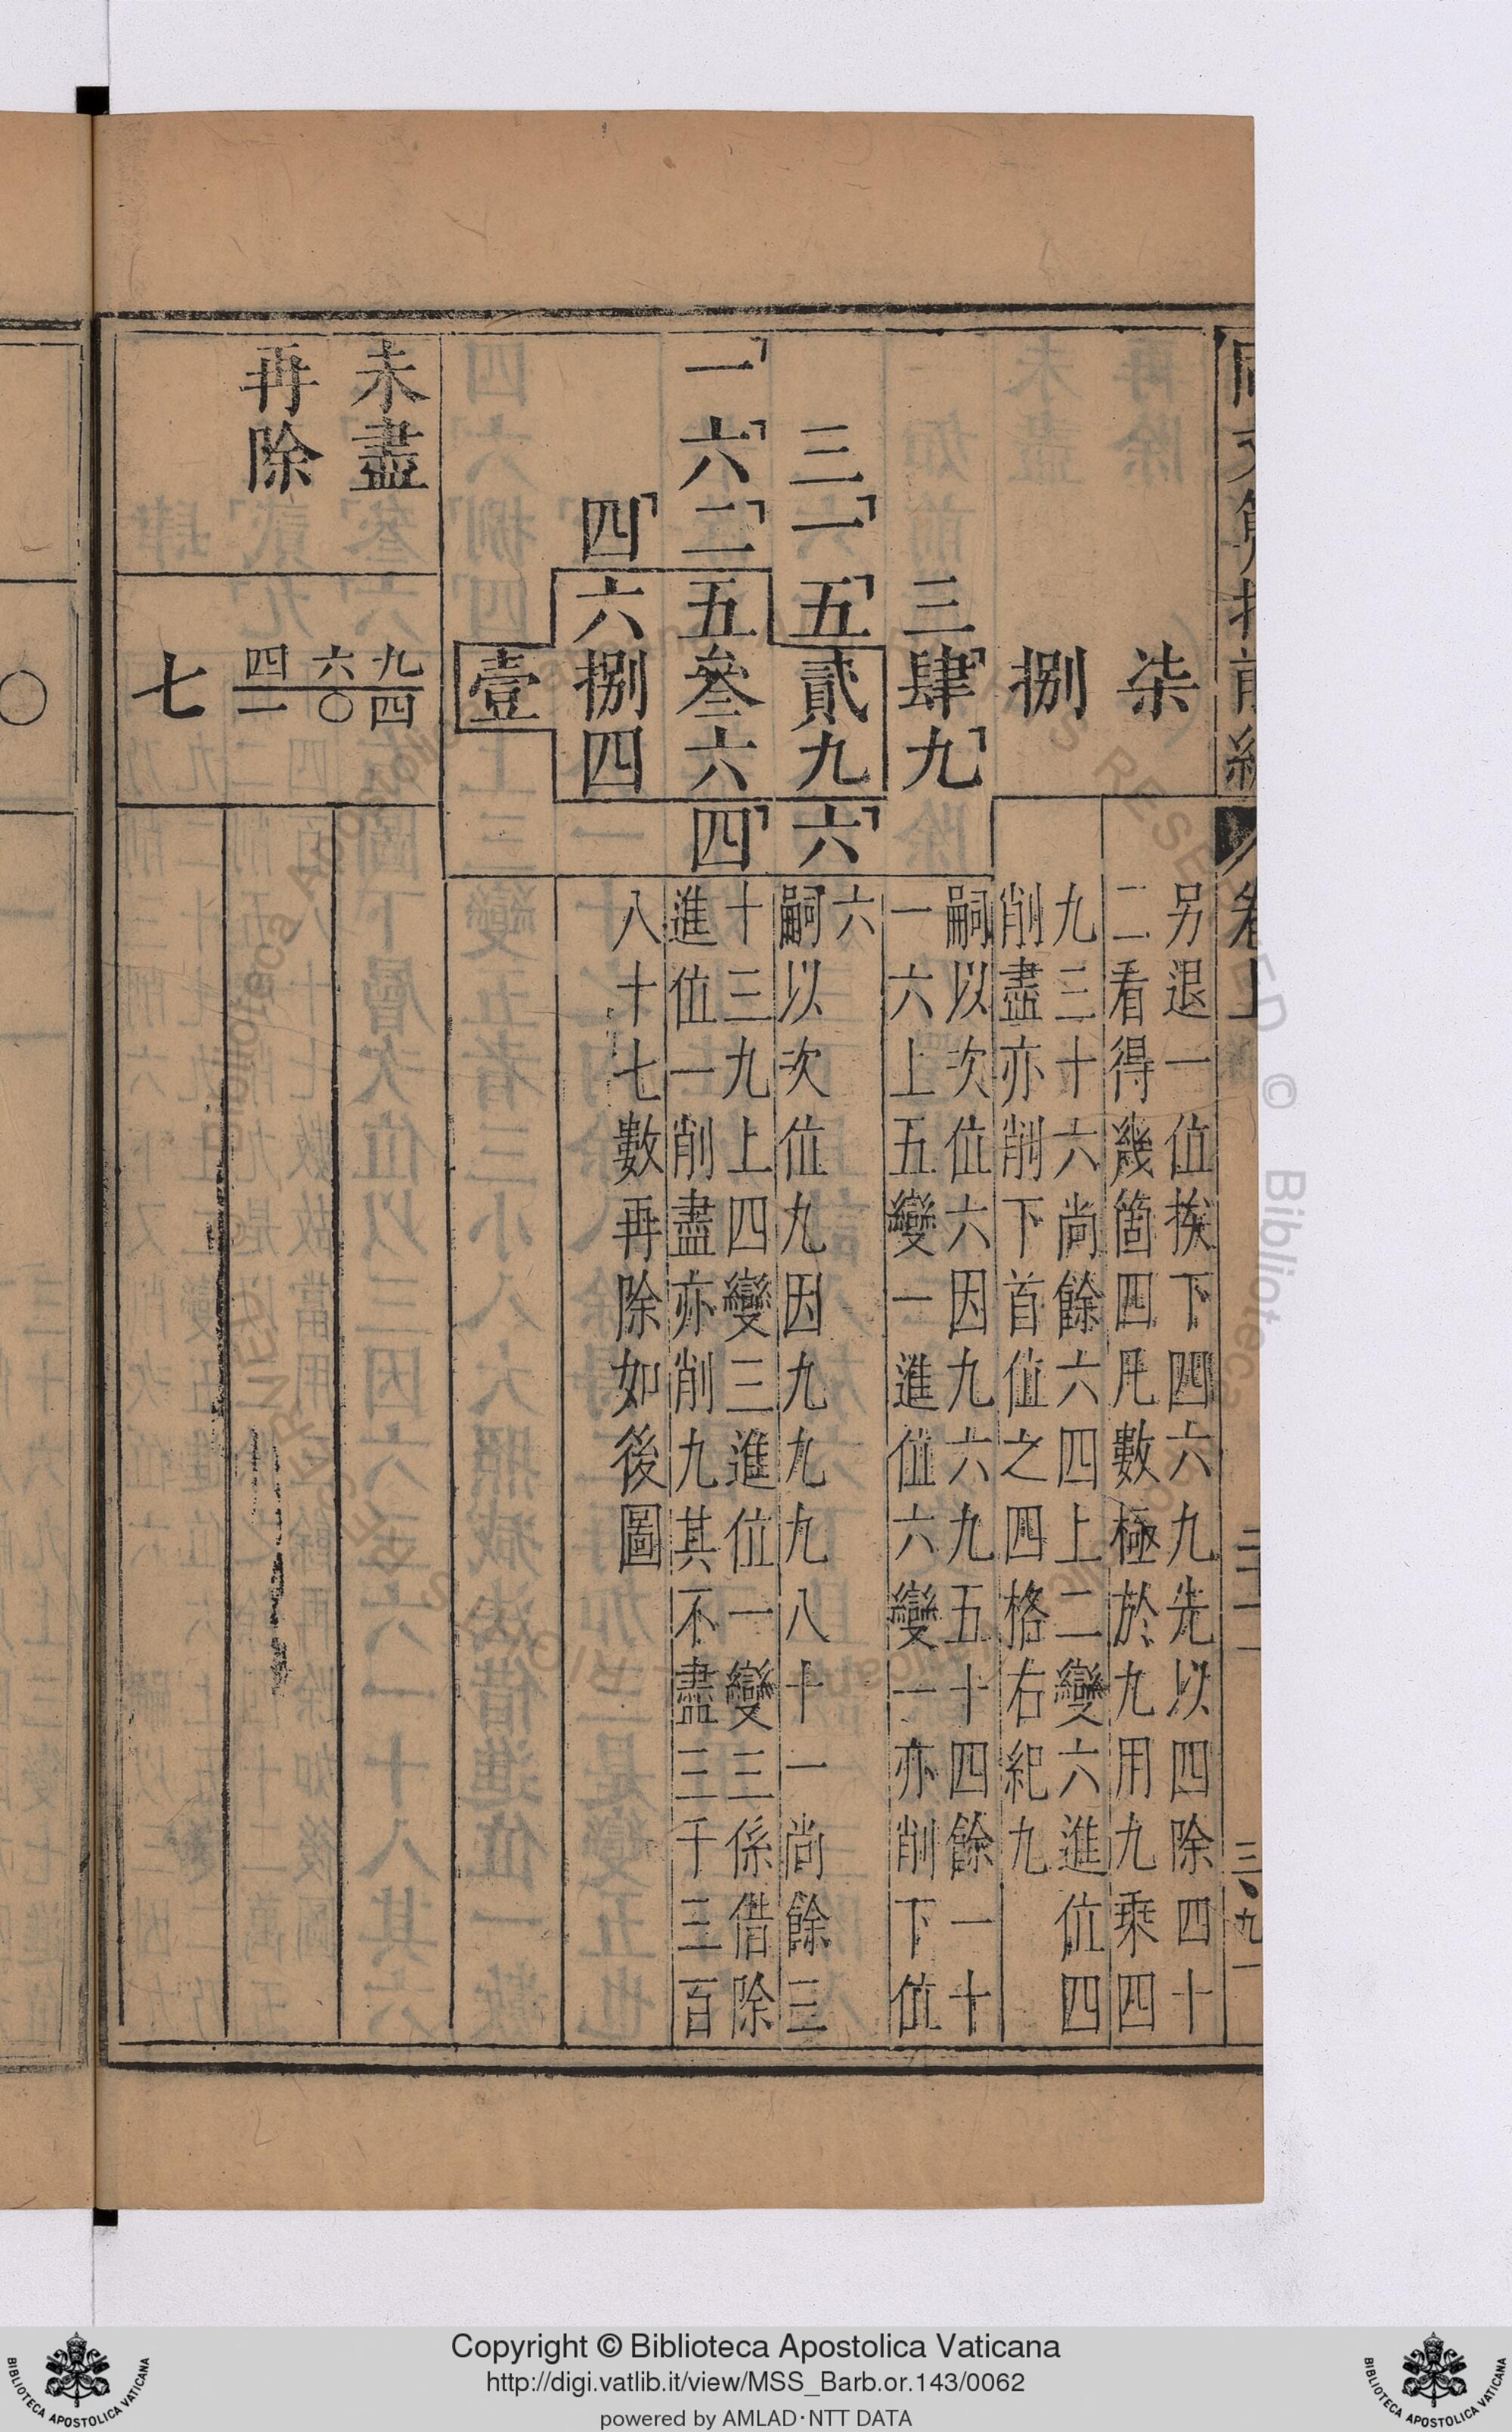 未盡
再除
九四
六〇
四一
七
柒
捌
三肆九
三一五貳九六
一六二五叄六四
四六捌四
壹
另退一位挨下四六九先以四除四十
二看得幾箇四凡數極於九用九乘四
九三十六尚餘六四上二變六進位四
削盡亦削下首位之四格右紀九
嗣以次位六因九六九五十四餘一十
一六上五變一進位六變一亦削下位
六
嗣以次位九因九九九八十一尚餘三
十三九上四變三進位一變三係借除
進位一削盡亦削九其不盡三千三百
八十七數再除如後圖
Copyright © Biblioteca Apostolica Vaticana
http://digi.vatlib.it/view/MSS_Barb.or.143/0062
powered by AMLAD·NTT DATA
BIBLIOTECA APOSTOLICA VATICANA
BIBLIOTECA APOSTOLICA VATICANA